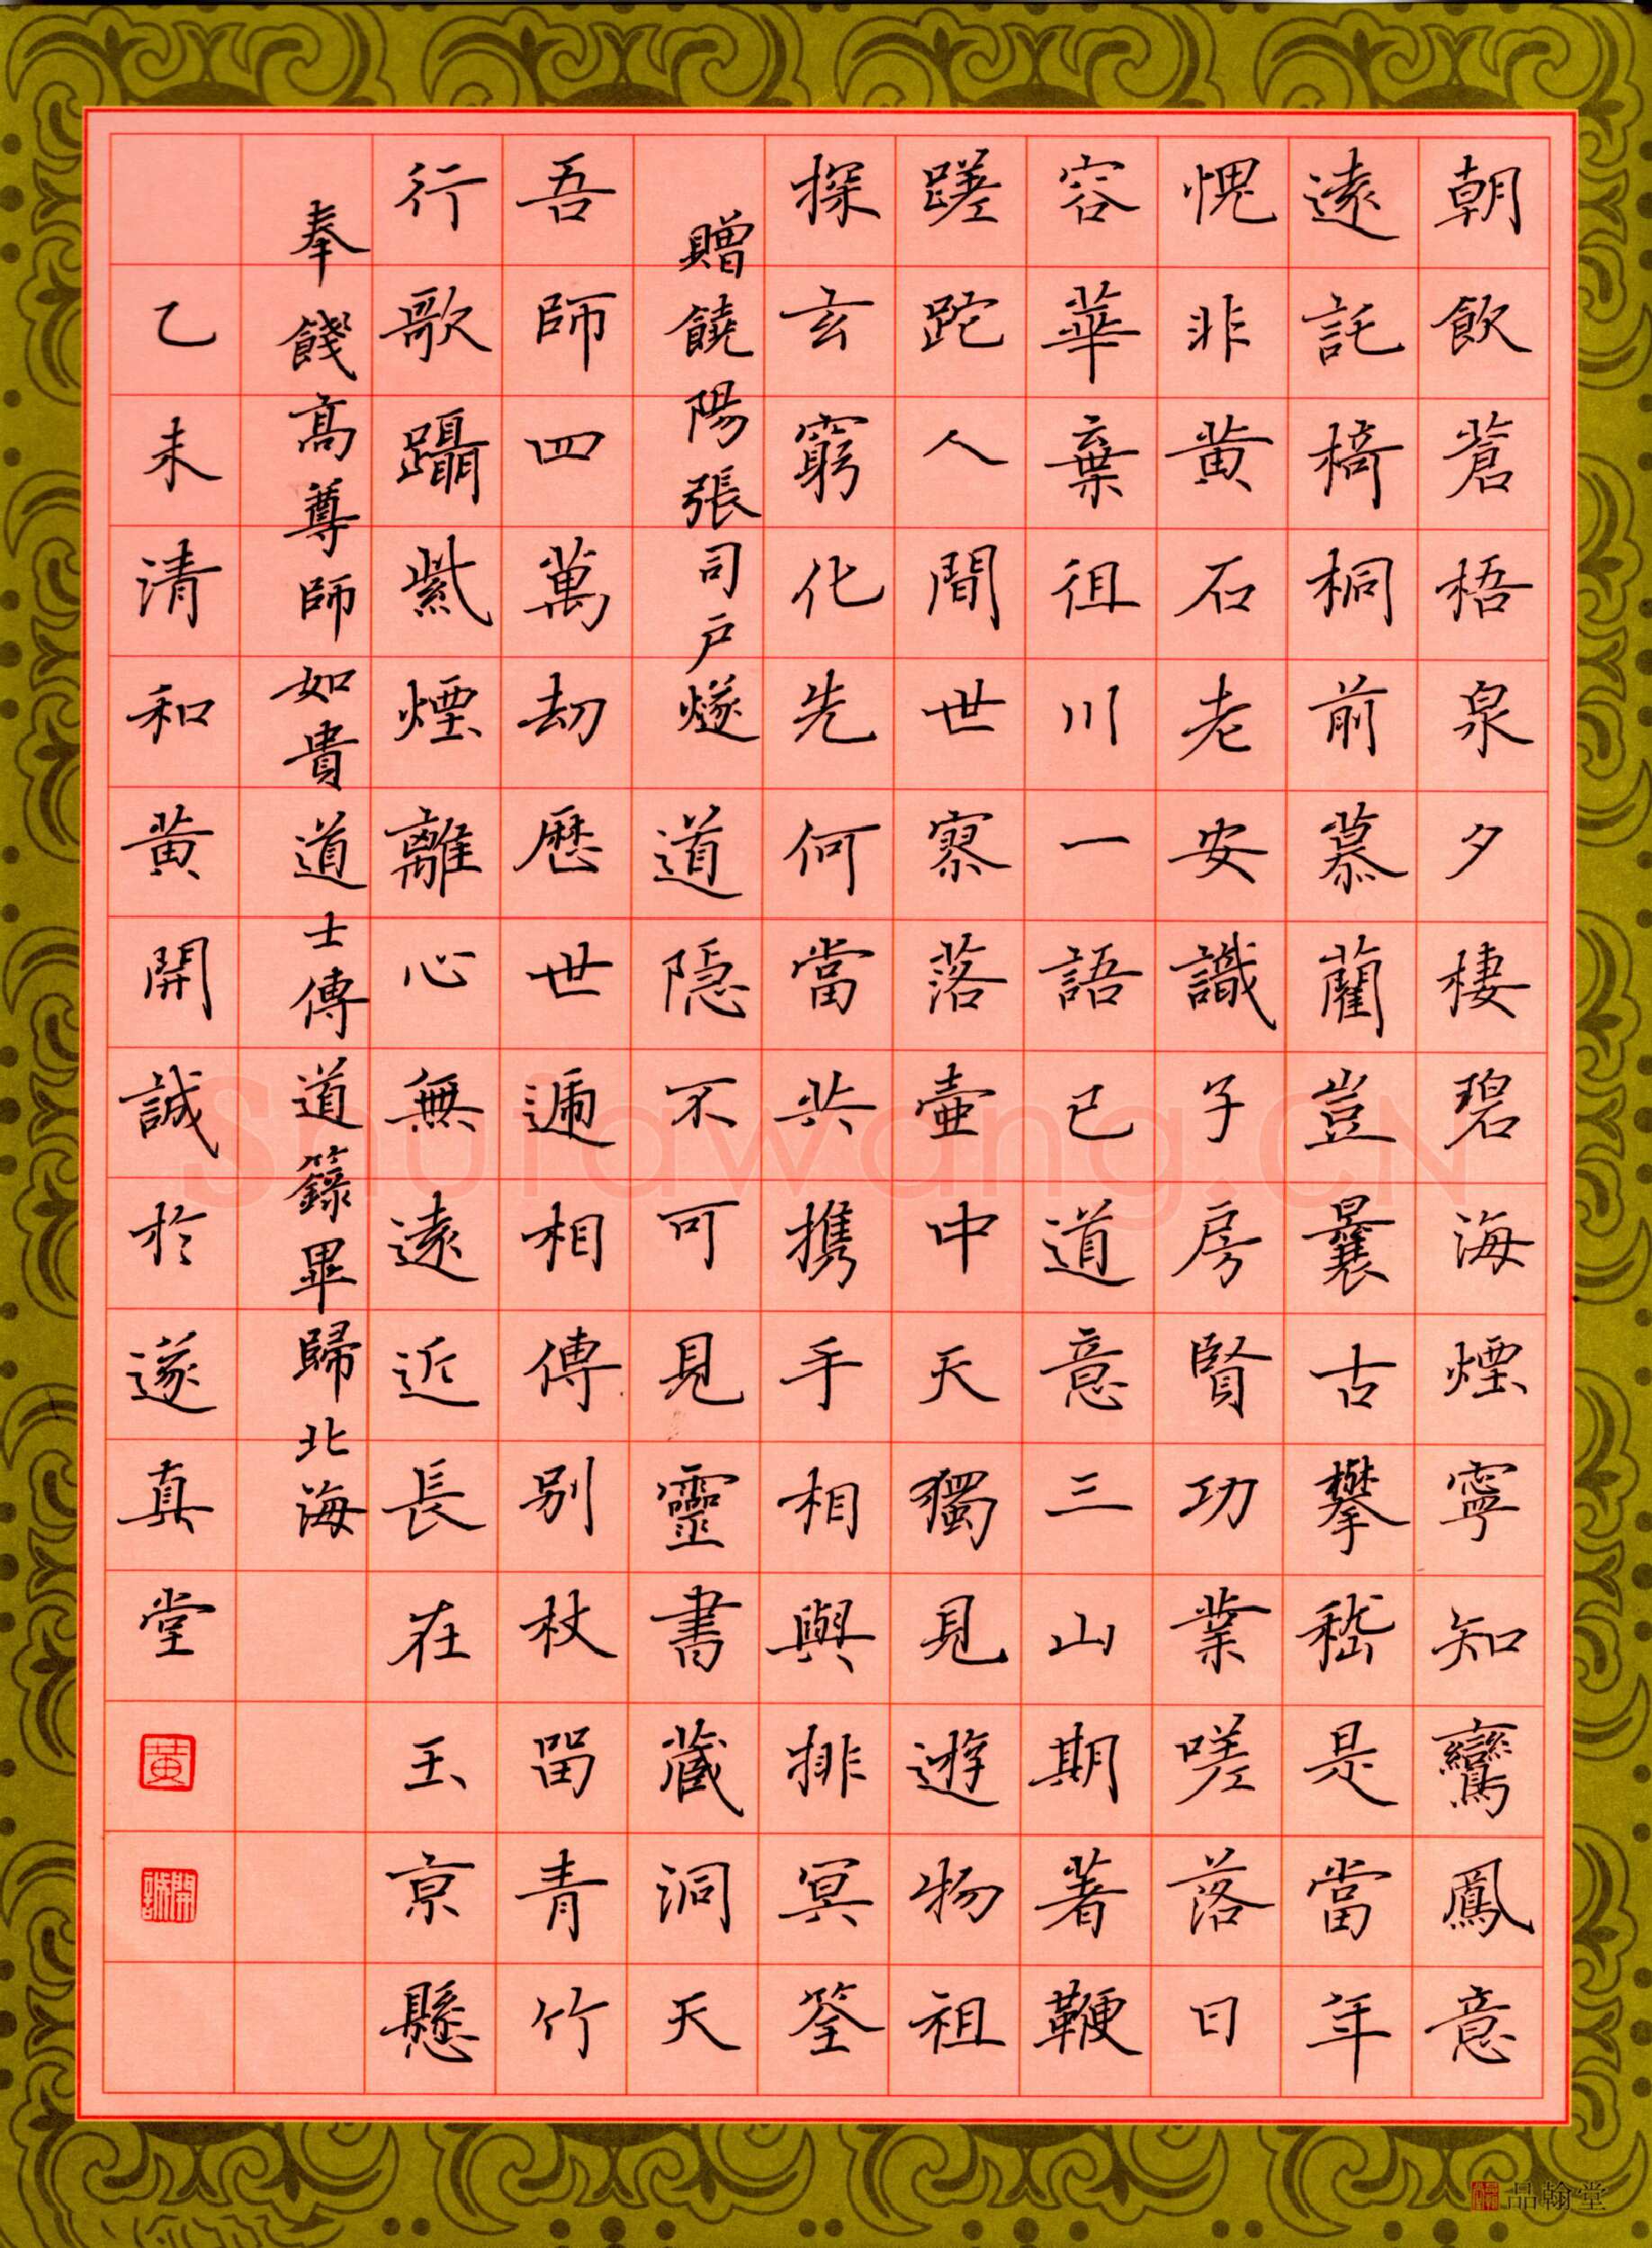 朝飲蒼梧泉夕棲碧海煙寧知鸞鳳意
遠託椅桐前慕藺豈曩古攀嵇是當年
愧非黄石老安識子房賢功業嗟落日
容華棄徂川一語已道意三山期著鞭
蹉跎人間世寥落壷中天獨見遊物祖
探玄窮化先何當共攜手相與排冥筌
贈饒陽張司戸燧道隠不可見靈書藏洞天
吾師四萬劫歷世遞相傳别杖留青竹
行歌躡紫煙離心無遠近長在玉京懸
奉餞高尊師如貴道士傳道籙畢歸北海
乙未清和黄開誠於遂真堂
黄
開誠
Shufawang.CN
品翰堂